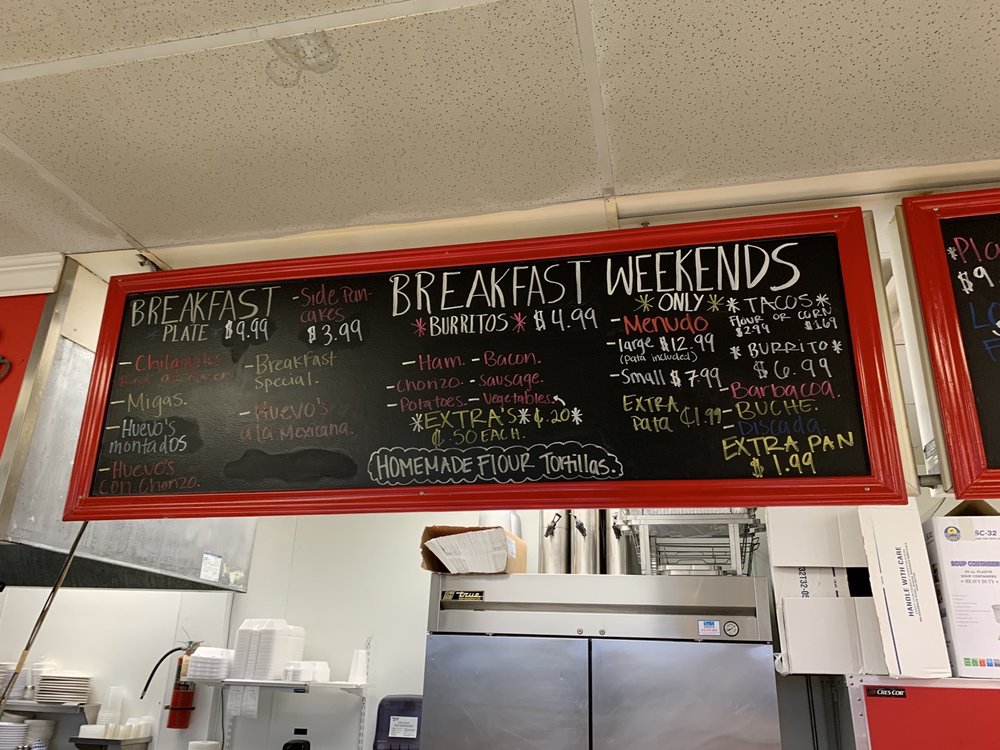 BREAKFAST
PLATE $9.99
- Chilaquiles
- Migas.
- Huevo's
montados
- Huevo's
Con Chorizo.
- Side Pan-
cakes
$3.99
- Breakfast
Special.
- Huevo's
a la Mexicana.
BREAKFAST
*BURRITOS* $4.99
- Ham. - Bacon.
- Chorizo. - Sausage.
- Potatoes. - Vegetables.
*EXTRA'S* ¢.20*
¢.50 EACH.
HOMEMADE FLOUR Tortillas.
WEEKENDS
*ONLY*
- Menudo
- large $12.99
(pata included)
- Small $7.99
EXTRA
Pata ¢1.99
*TACOS*
FLOUR or CORN
$2.99 $1.69
*BURRITO*
$6.99
- Barbacoa.
- BUCHE.
- Discada.
EXTRA PAN
$1.99
$9
true
HANDLE WITH CARE
SC-32
SOUP CONTAINERS
CRES COR